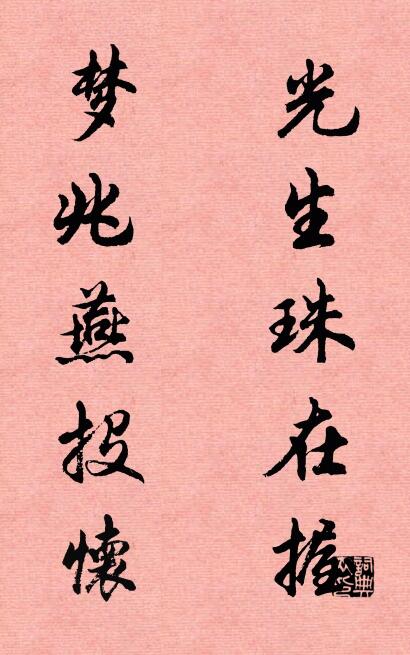 光生珠在握
梦兆燕投懷